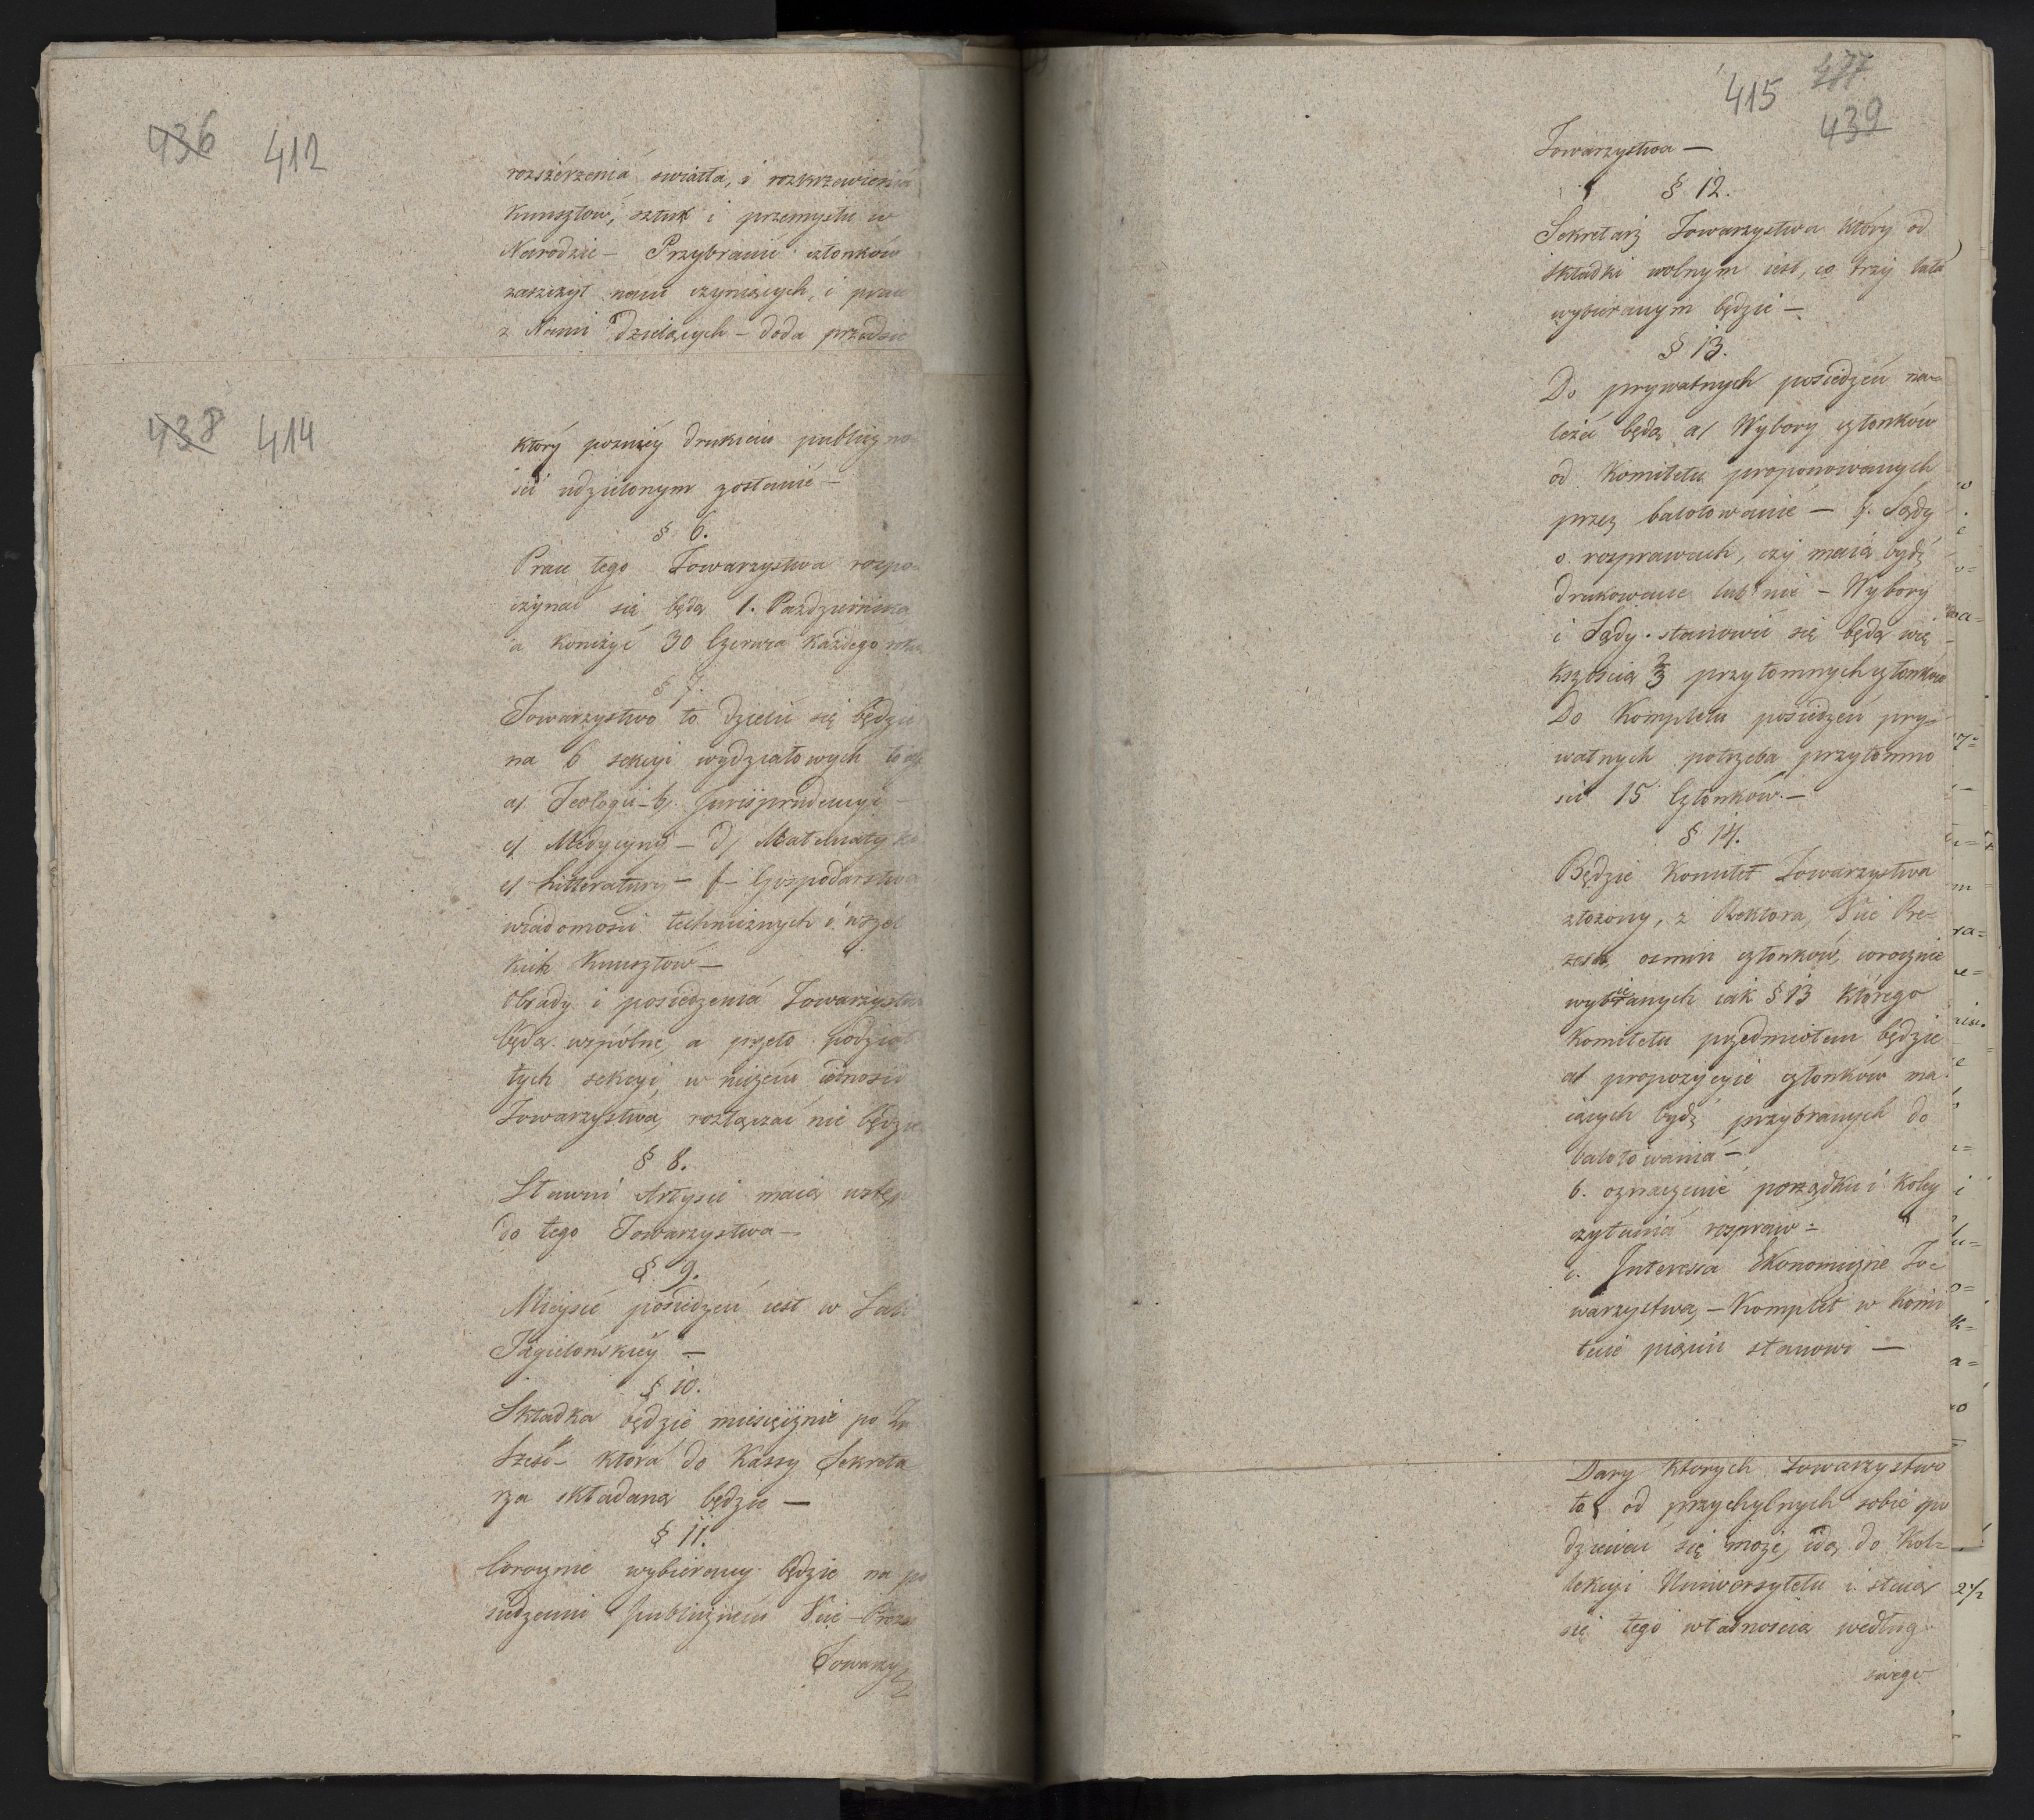 436 412
rozsiérzeniá swiatła, i rozkrzewieniá
Kunsztow, sztuk i przemysłu w
Narodzie – Przybranie członków
zaszczyt nam czyniących, i prace
z Nami dzielących – doda przedsie
438 414
który pozniéy drukiem publiczno-
sci udzielonym zostanié –
§ 6.
Prace tego Towarzystwa rozpo=
czynać się będą 1. Pazdziernika
a konczyć 30 Czerwca każdego roku
§ 7.
Towarzystwo to dzielić się będzie
na 6 sekcyi wydziałowych to iest
a/ Teologii – b/. Jurisprudencyi –
c/ Medycyny – d/ Matematyki
e/ Litteratury – f – Gospodarstwa
wiadomości technicznych i wszel
kich Kunsztów –
Obrady i posiedzeniá Towarzystwa
będą wspólne, a przeto podział
tych sekcyi w niczém iednosci
Towarzystwa rozłączać nie będzie
§ 8.
Sławni Artysci maią wstęp
do tego Towarzystwa –
§ 9.
Mieysce posiedzeń iest w Sali
Jagielońskiéy –
§ 10.
Składka będzie miesięcznie po Zł
szesć – która do Kassy Sekreta
rza składaną będzie –
§ 11.
Corocznie wybierany będzie na po
siedzeniu publiczném Vice – Prezes
Towarzy
415 477
439
Towarzystwa –
§ 12.
Sekretarz Towarzystwa który od
składki wolnym iest, co trzy lata
wybieranym będzie –
§ 13.
Do prywatnych posiedzeń na=
leżeć będą a/ Wybory członków
od Komitetu proponowanych
przez balotowanie – b. Sądy
o rozprawach, czy maią bydź
drukowane lub nie – Wybory
i Sądy stanowić się będą wię
kszoscią 2/3 przytomnych członków
Do Kompletu posiedzeń pry=
watnych potrzeba przytomno
sci 15 Członków –
§ 14.
Będzie Komitet Towarzystwa
złożony, z Rektora, Vice Pre=
zesa, osmiu członków, corocznie
wybieranych iak § 13 którego
Komitetu przedmiotem będzie
a/ propozycyie członków ma
iących bydź przybranych do
balotowaniá –
b. oznaczenie porządku i koley
czytaniá rozpraw =
c. Interessa Ekonomiczne To=
warzystwa, – Komplet w Komi
tecie pięciu stanowi –
Dary których Towarzystwo
to od przychylnych sobie spo
dziewać się może, idą do Kol=
lekcyi Uniwersytetu i staią
się tego własnoscią według
swego